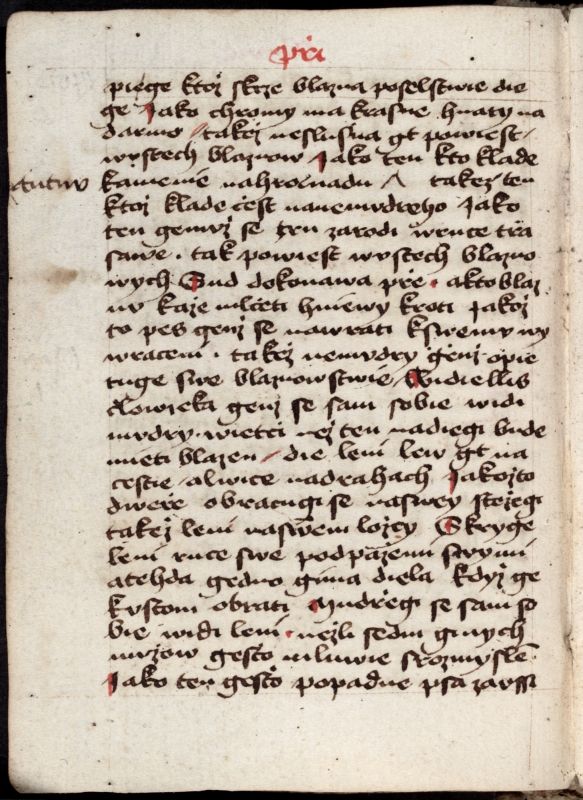 při
pięge ktoż skrze blazna poselstwie die
ge Jako chromy ma krasne hnaty na
darmo takež neslusna gt powiest
wustech blaznow Jako ten kto klade
kamenie nahromadu takez ten
ktoż klade čest nanemudreho Jako
ten genwż se trn zarodi wruce tra
sawe . tak powiest wustech blazno
wych Sud dokonawa pře . akto blaz
nu każe mlčeti hniewy kroti Jakož
to pes genż se nawrati kswemu wy
wraceni . takéż nemudry genż opie
tuge swe blaznowstwie Widiellis
człowieka genż se sam sobie widi
mudry . wietči neż ten nadiegi bude
mieti blazen die leni lew gt na
cestie alwice nadrahach Jakożto
dweře obracugi se naswey steżegi
takeż leni naswem lożcy Skryge
leni ruce swe podpażemi swymi
atehda gedno gima diela kdyż ge
kustom obrati Mudřegi se sam so
bie widi leni . neżli sedm ginych
mużow gesto mluwie srozmyslē
Jako ten gesto popadne psa zaussi